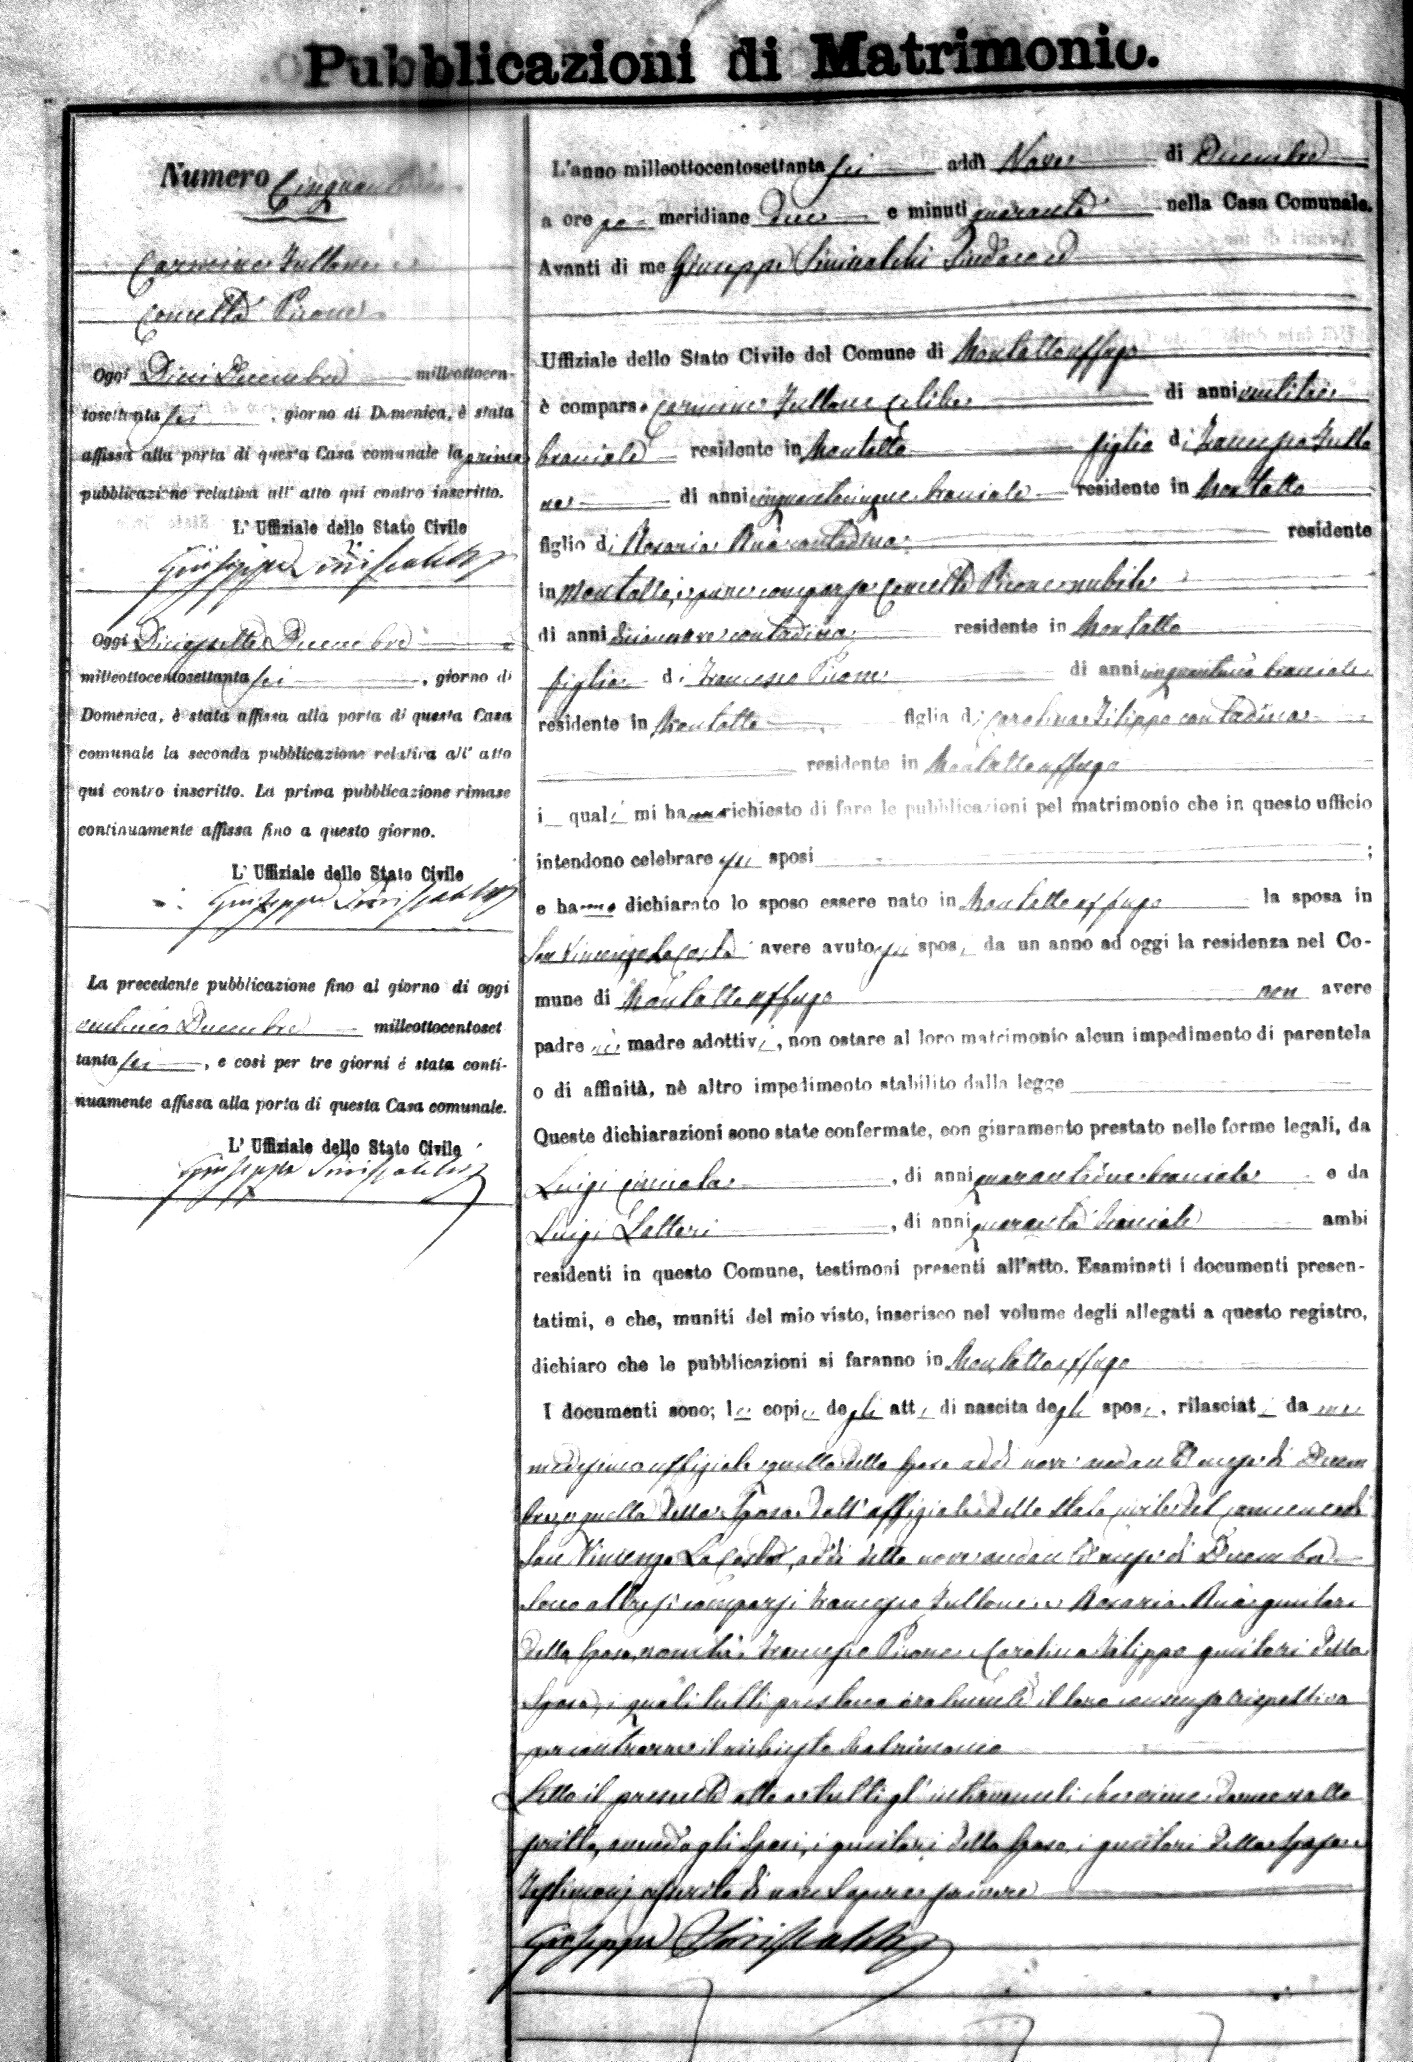 Pubblicazioni di Matrimonio.
Numero
Carmine Fullone
Concetta Pirone
Oggi Dieci Decembre milleottocen-
tosettanta sei, giorno di Domenica, è stata
affissa alla porta di questa Casa comunale la prima
pubblicazione relativa all' atto qui contro inscritto.
L' Uffiziale dello Stato Civile
Giuseppe Sinisalchi
Oggi Diciassette Decembre
milleottocentosettanta sei, giorno di
Domenica, è stata affissa alla porta di questa Casa
comunale la seconda pubblicazione relativa all' atto
qui contro inscritto. La prima pubblicazione rimase
continuamente affissa fino a questo giorno.
L' Uffiziale dello Stato Civile
Giuseppe Sinisalchi
La precedente pubblicazione fino al giorno di oggi
Decembre milleottocentoset
tanta sei, e così per tre giorni é stata conti-
nuamente affissa alla porta di questa Casa comunale.
L' Uffiziale dello Stato Civile
Giuseppe Sinisalchi
L'anno milleottocentosettanta sei addì Nove di Decembre
a ore po meridiane due e minuti quaranta nella Casa Comunale.
Avanti di me Giuseppe Sinisalchi Sindaco
Uffiziale dello Stato Civile del Comune di Montalto uffugo
è compars o Carmine Fullone celibe di anni ventitre
bracciale residente in Montalto figlio di Francesco Fullo
ne di anni cinquantacinque bracciale residente in Montalto
figlio di Rosaria Ruà contadina residente
in Montalto, e pure comparsa Concetta Pirone nubile
di anni diciannove contadina residente in Montalto
figlia di Francesco Pirone di anni bracciale
residente in Montalto figlia di Carolina Filippo contadina
residente in Montalto uffugo
i quali mi hanno richiesto di fare le pubblicazioni pel matrimonio che in questo ufficio
intendono celebrare gli sposi ;
e hanno dichiarato lo sposo essere nato in Montalto uffugo la sposa in
San Vincenzo La Costa avere avuto gli sposi da un anno ad oggi la residenza nel Co-
mune di Montalto uffugo non avere
padre nè madre adottivi, non ostare al loro matrimonio alcun impedimento di parentela
o di affinità, nè altro impedimento stabilito dalla legge
Queste dichiarazioni sono state confermate, con giuramento prestato nelle forme legali, da
Luigi, di anni quarantadue bracciale e da
Luigi Lattari, di anni quaranta bracciale ambi
residenti in questo Comune, testimoni presenti all'atto. Esaminati i documenti presen-
tatimi, e che, muniti del mio visto, inserisco nel volume degli allegati a questo registro,
dichiaro che le pubblicazioni si faranno in Montalto uffugo
I documenti sono; le copie degli atti di nascita degli sposi, rilasciati da me
medesimo uffiziale quella dello sposo addì nove andante mese di Decem
bre, e quella della sposa dall'uffiziale dello stato civile del comune di
San Vincenzo La Costa, addì detto nove andante mese di Decembre
Sono altresì comparsi Francesco Fullone e Rosaria Ruà genitori
dello sposo, nonché Francesco Pirone e Carolina Filippo genitori della
sposa, i quali tutti prestano oralmente il loro consenso rispettivo
per contrarre il richiesto Matrimonio
Letto il presente atto a tutti gl'intervenuti
avendo gli sposi, i genitori dello sposo, i genitori della sposa e
testimonj asserito di non sapere scrivere
Giuseppe Sinisalchi